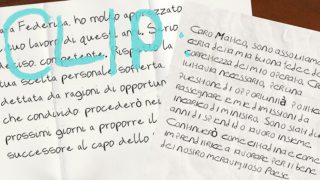 CLIP
a Federica, ho molto apprezzato
uo lavoro di questi anni. Scrio
deciso competente. Rispetto la
tua scelta personale sofferta
dettata da ragioni di opportun
che condivido procederò nei
prossimi giorni a proporre il
successore al capo dello
CARO MATTEO, SONO ASSOLUTAME
CERTA DELLA MIA BUONA FEDE E DE
CORRETTEZZA DEL MIO OPERATO. CRE
TUTTAVIA NECESSARIO, PER UNA
QUESTIONE DI OPPORTUNITÀ POLITICA
RASSEGNARE LE MIE DIMISSIONI DA
INCARICO DI MINISTRO. SONO STATI DUE
ANNI DI SPLENDIDO LAVORO INSIEME.
CONTINUERÒ COME CITTADINA E COME
IMPRENDITRICE A LAVORARE PER IL BENE
DEL NOSTRO MERAVIGLIOSO PAESE